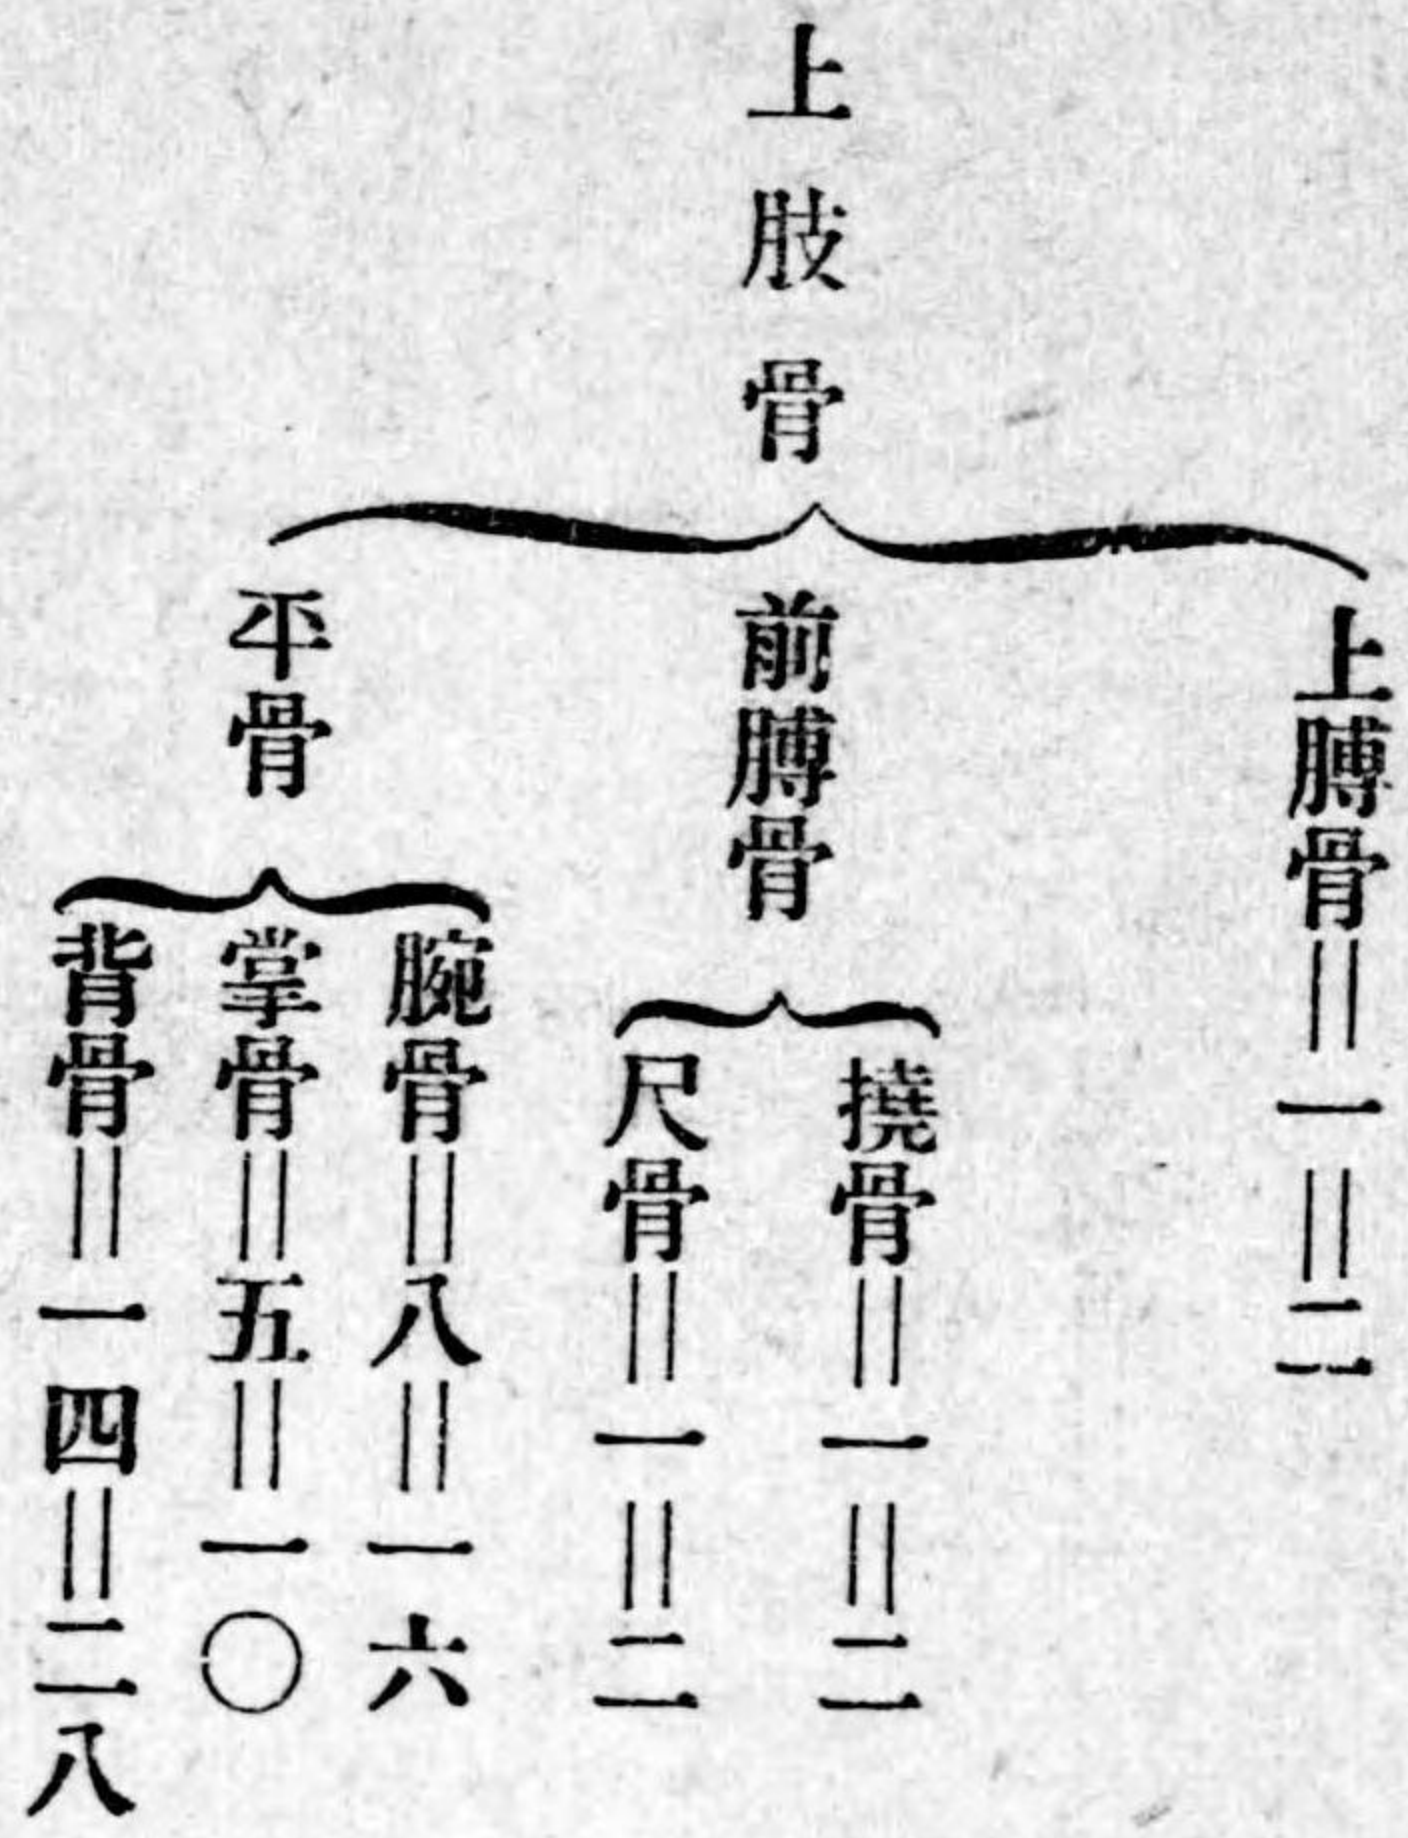 上肢骨
上膊骨＝一＝二
前膊骨
撓骨＝一＝二
尺骨＝一＝二
平骨
腕骨＝八＝一六
掌骨＝五＝一〇
背骨＝一四＝二八